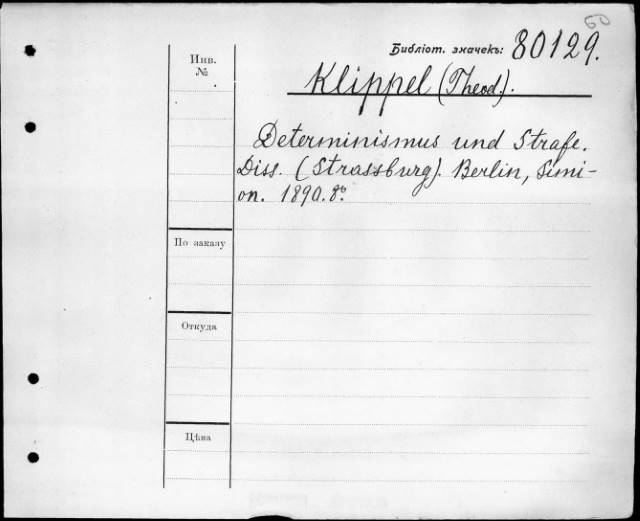 60
Библіот. значекъ: 80129.
Инв.
№
Klippel (Theod.).
Determinismus und Strafe.
Diss. (Strassburg). Berlin, Simi-
on. 1890. 8º.
По заказу
Откуда
Цѣна